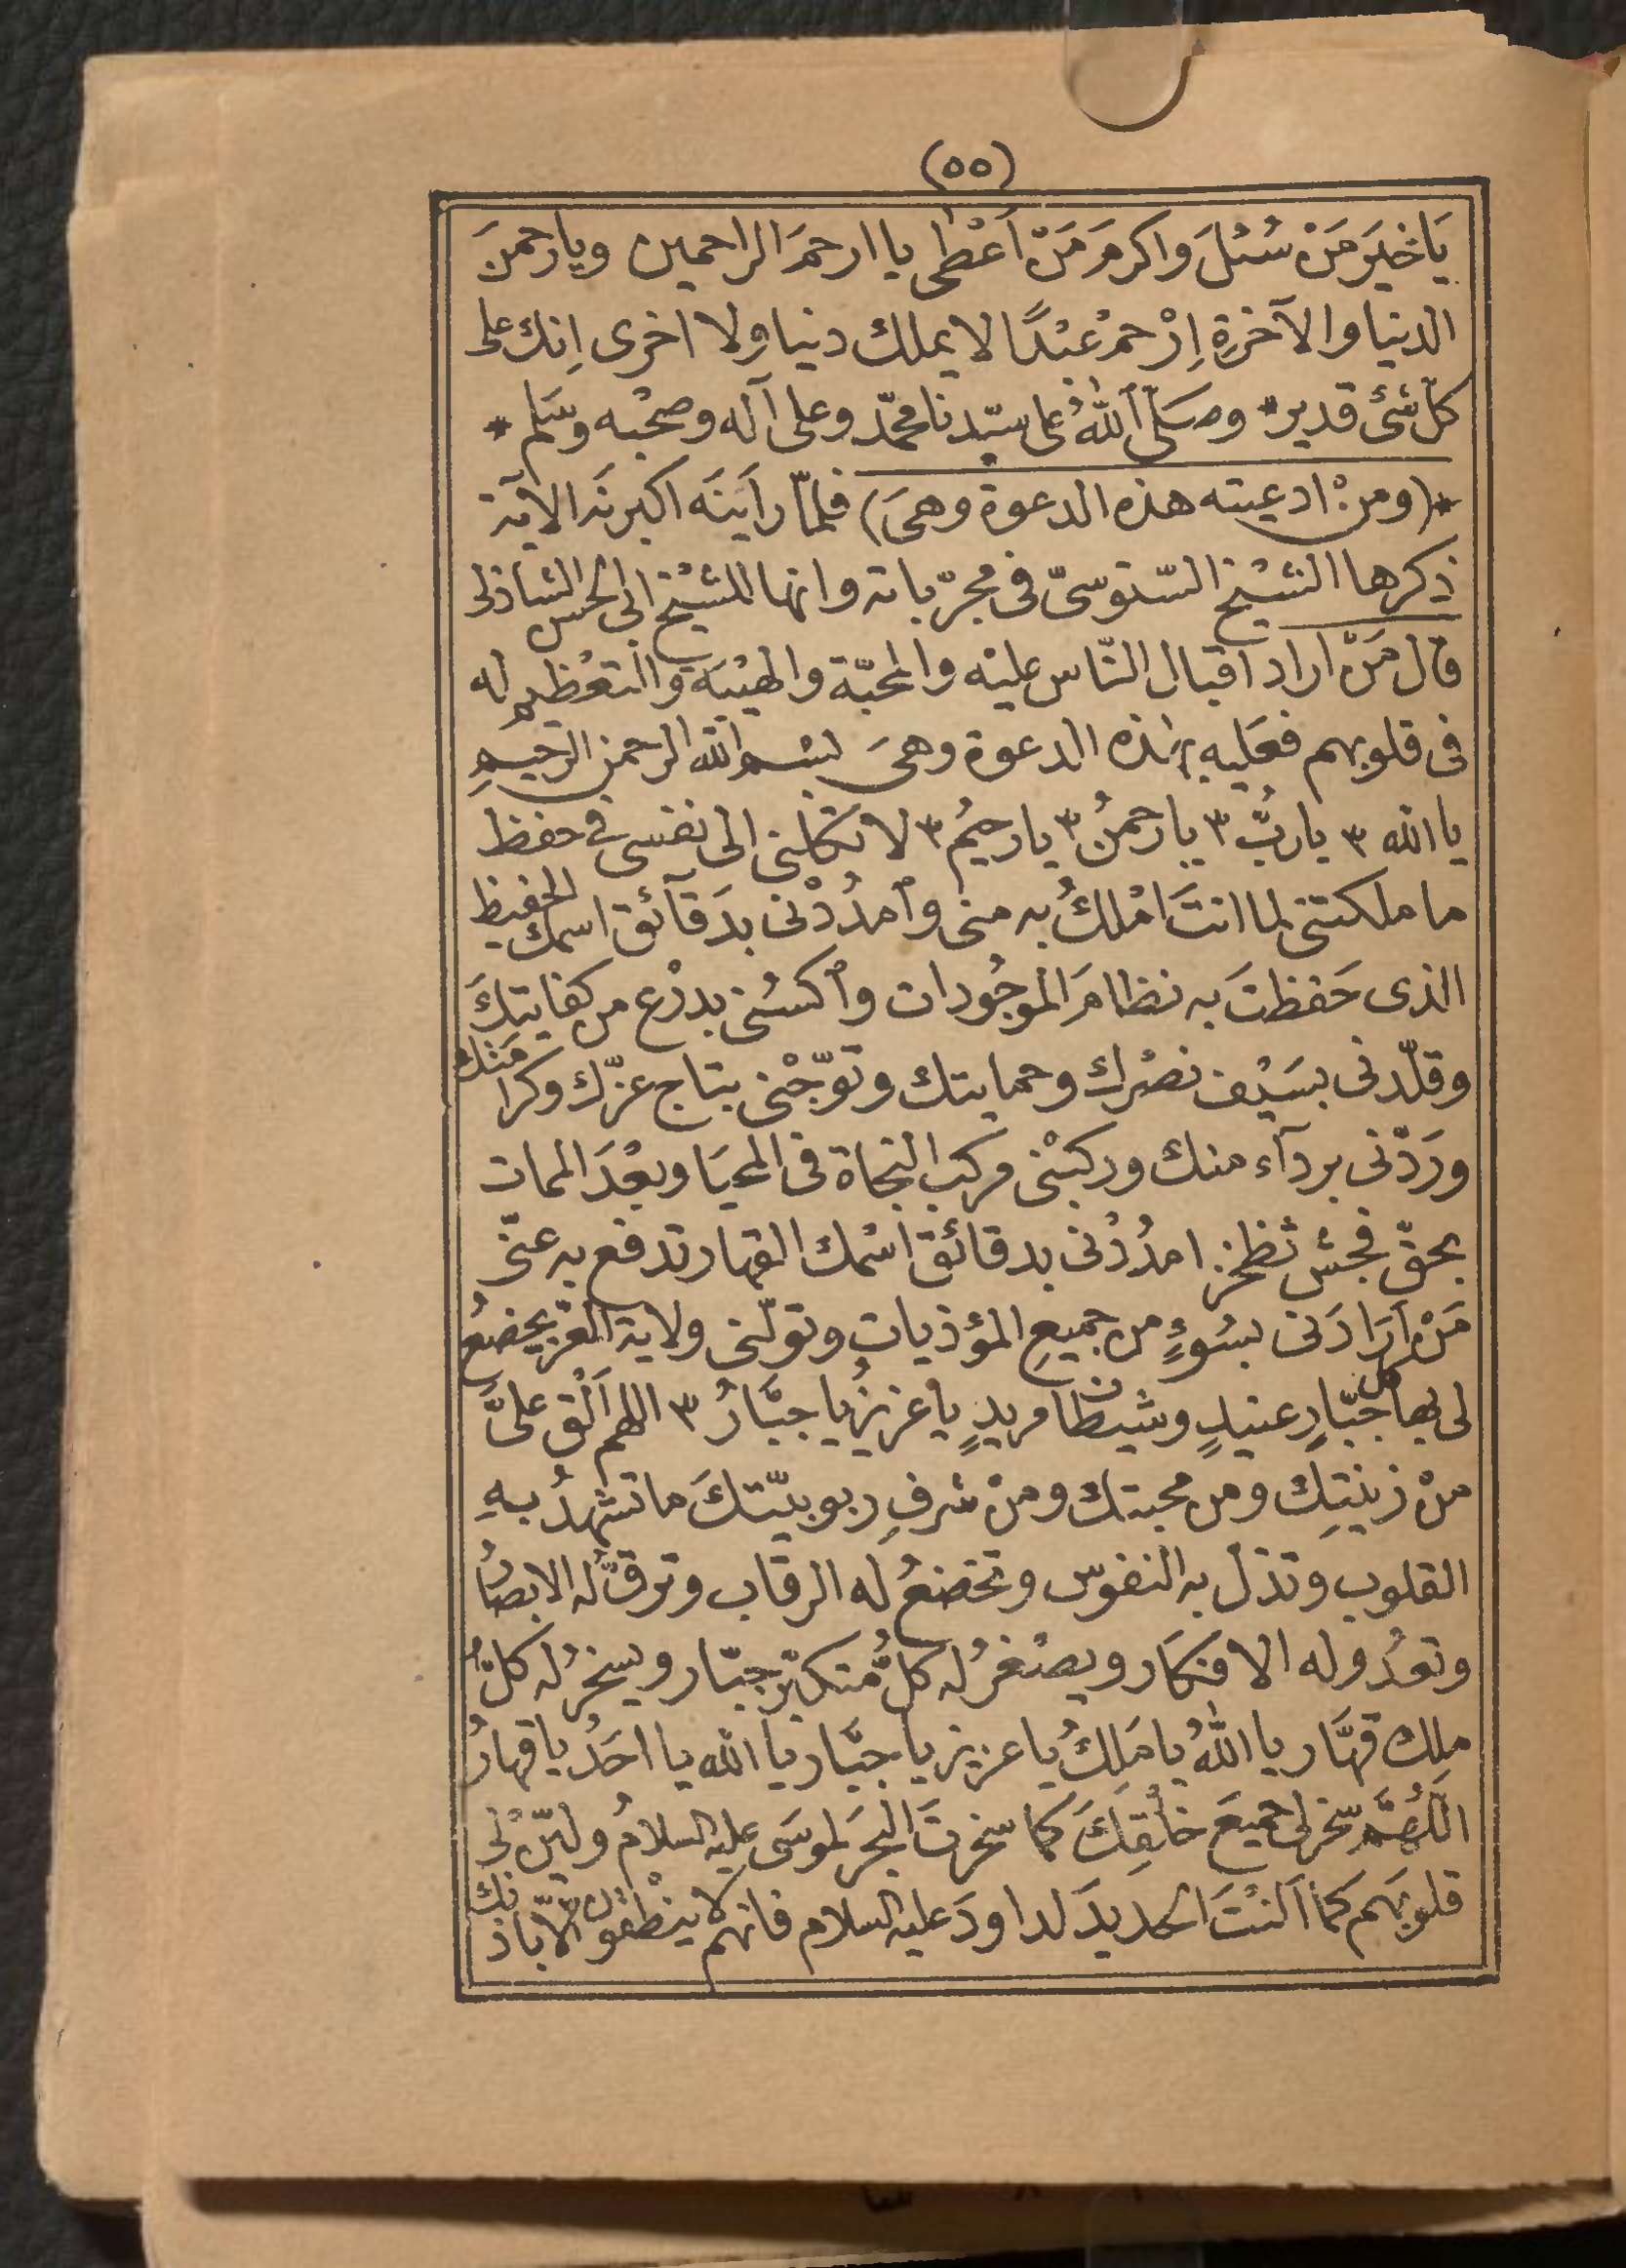 (٥٥)
يَا خيَر مَنْ سُئلَ واكرمَ مَنْ اَعْطٰى يا ارحمَ الراحمين ويارحمنَ
الدنيا والآخرةِ اِرْحمْ عَبْدًا لا يملك دنيا ولا اخرى اِنك على
كلّ شئ قدير * وصَلّى اللّٰهُ على سيّدنا محمّد وعلى آله وصحْبه وسَلم *
* (ومن ادعيته هذه الدعوة وهىَ) فلمّا رَاَينَه اكبرنَه الاية
ذكرها الشيْخ السّنوسىّ فى مجرّباته وانها للشيْخ ابى الحسن الشاذلى
قال مَنْ اراد اقبال النّاس عليْه والمحبّة والهيْبَة والتعْظيم له
فى قلوبهم فعَليه بهٰذه الدعوة وهىَ بسْم اللّٰه الرحمن الرحيمِ
يا اللّٰه ٣ ياربُّ ٣ يا رحمنُ ٣ يا رحيمُ ٣ لا تكلنى الى نفسى فى حفظ
ما ملكتنى لما انتَ امْلكُ به منى وامدُدْنى بدَقآئق اسمك الحفيظ
الذى حَفظتَ به نظامَ الموجُودات واكسُنى بدرْع من كفايتكَ
وقلّدنى بسَيْف نصْرك وحمايتك وتوّجْنى بتاج عزّك وكرامَتك
ورَدّنى بردآء منك وركبْنى مركب النجاة فى المحيَا وبعْدَ الممات
بحقّ فجش ثظخز امدُدْنى بدقائق اسْمك القهار تدفع به عنّى
مَنْ اَرَادَنى بسُوءٍ من جميعِ المؤذيات وتولّنى ولاية العزّ يخضعُ
لى بها كل جبّارٍ عنيدٍ وشيطان مريدٍ يا عزيزُ يا جبَّارُ ٣ اللهم اَلْق علىَّ
منْ زينتِك ومن محبتك ومنْ شرفِ ربوبيّتكَ ما تشهدُ بهِ
القلوب وتذلّ به النفوس وتخضعُ له الرقاب وترقُّ له الابصارُ
وتعدُو له الافكار ويصْغرُ له كلُّ متكبّر جبّار ويسخرُ له كلُّ
ملك قهَّار يا اللّٰهُ يا مَلكُ يا عزيز يا جبَّار يا اللّٰه يا احَدُ يا قهارُ
اللّهُمَّ سخر لى جميعَ خلْقِكَ كما سخرتَ البحرَ لموسَى عليه السلامُ وليّن لى
قلوبَهم كما اَلنْتَ الحديدَ لداودَ عليه السلام فانهم لا ينطقون الّا باذنك